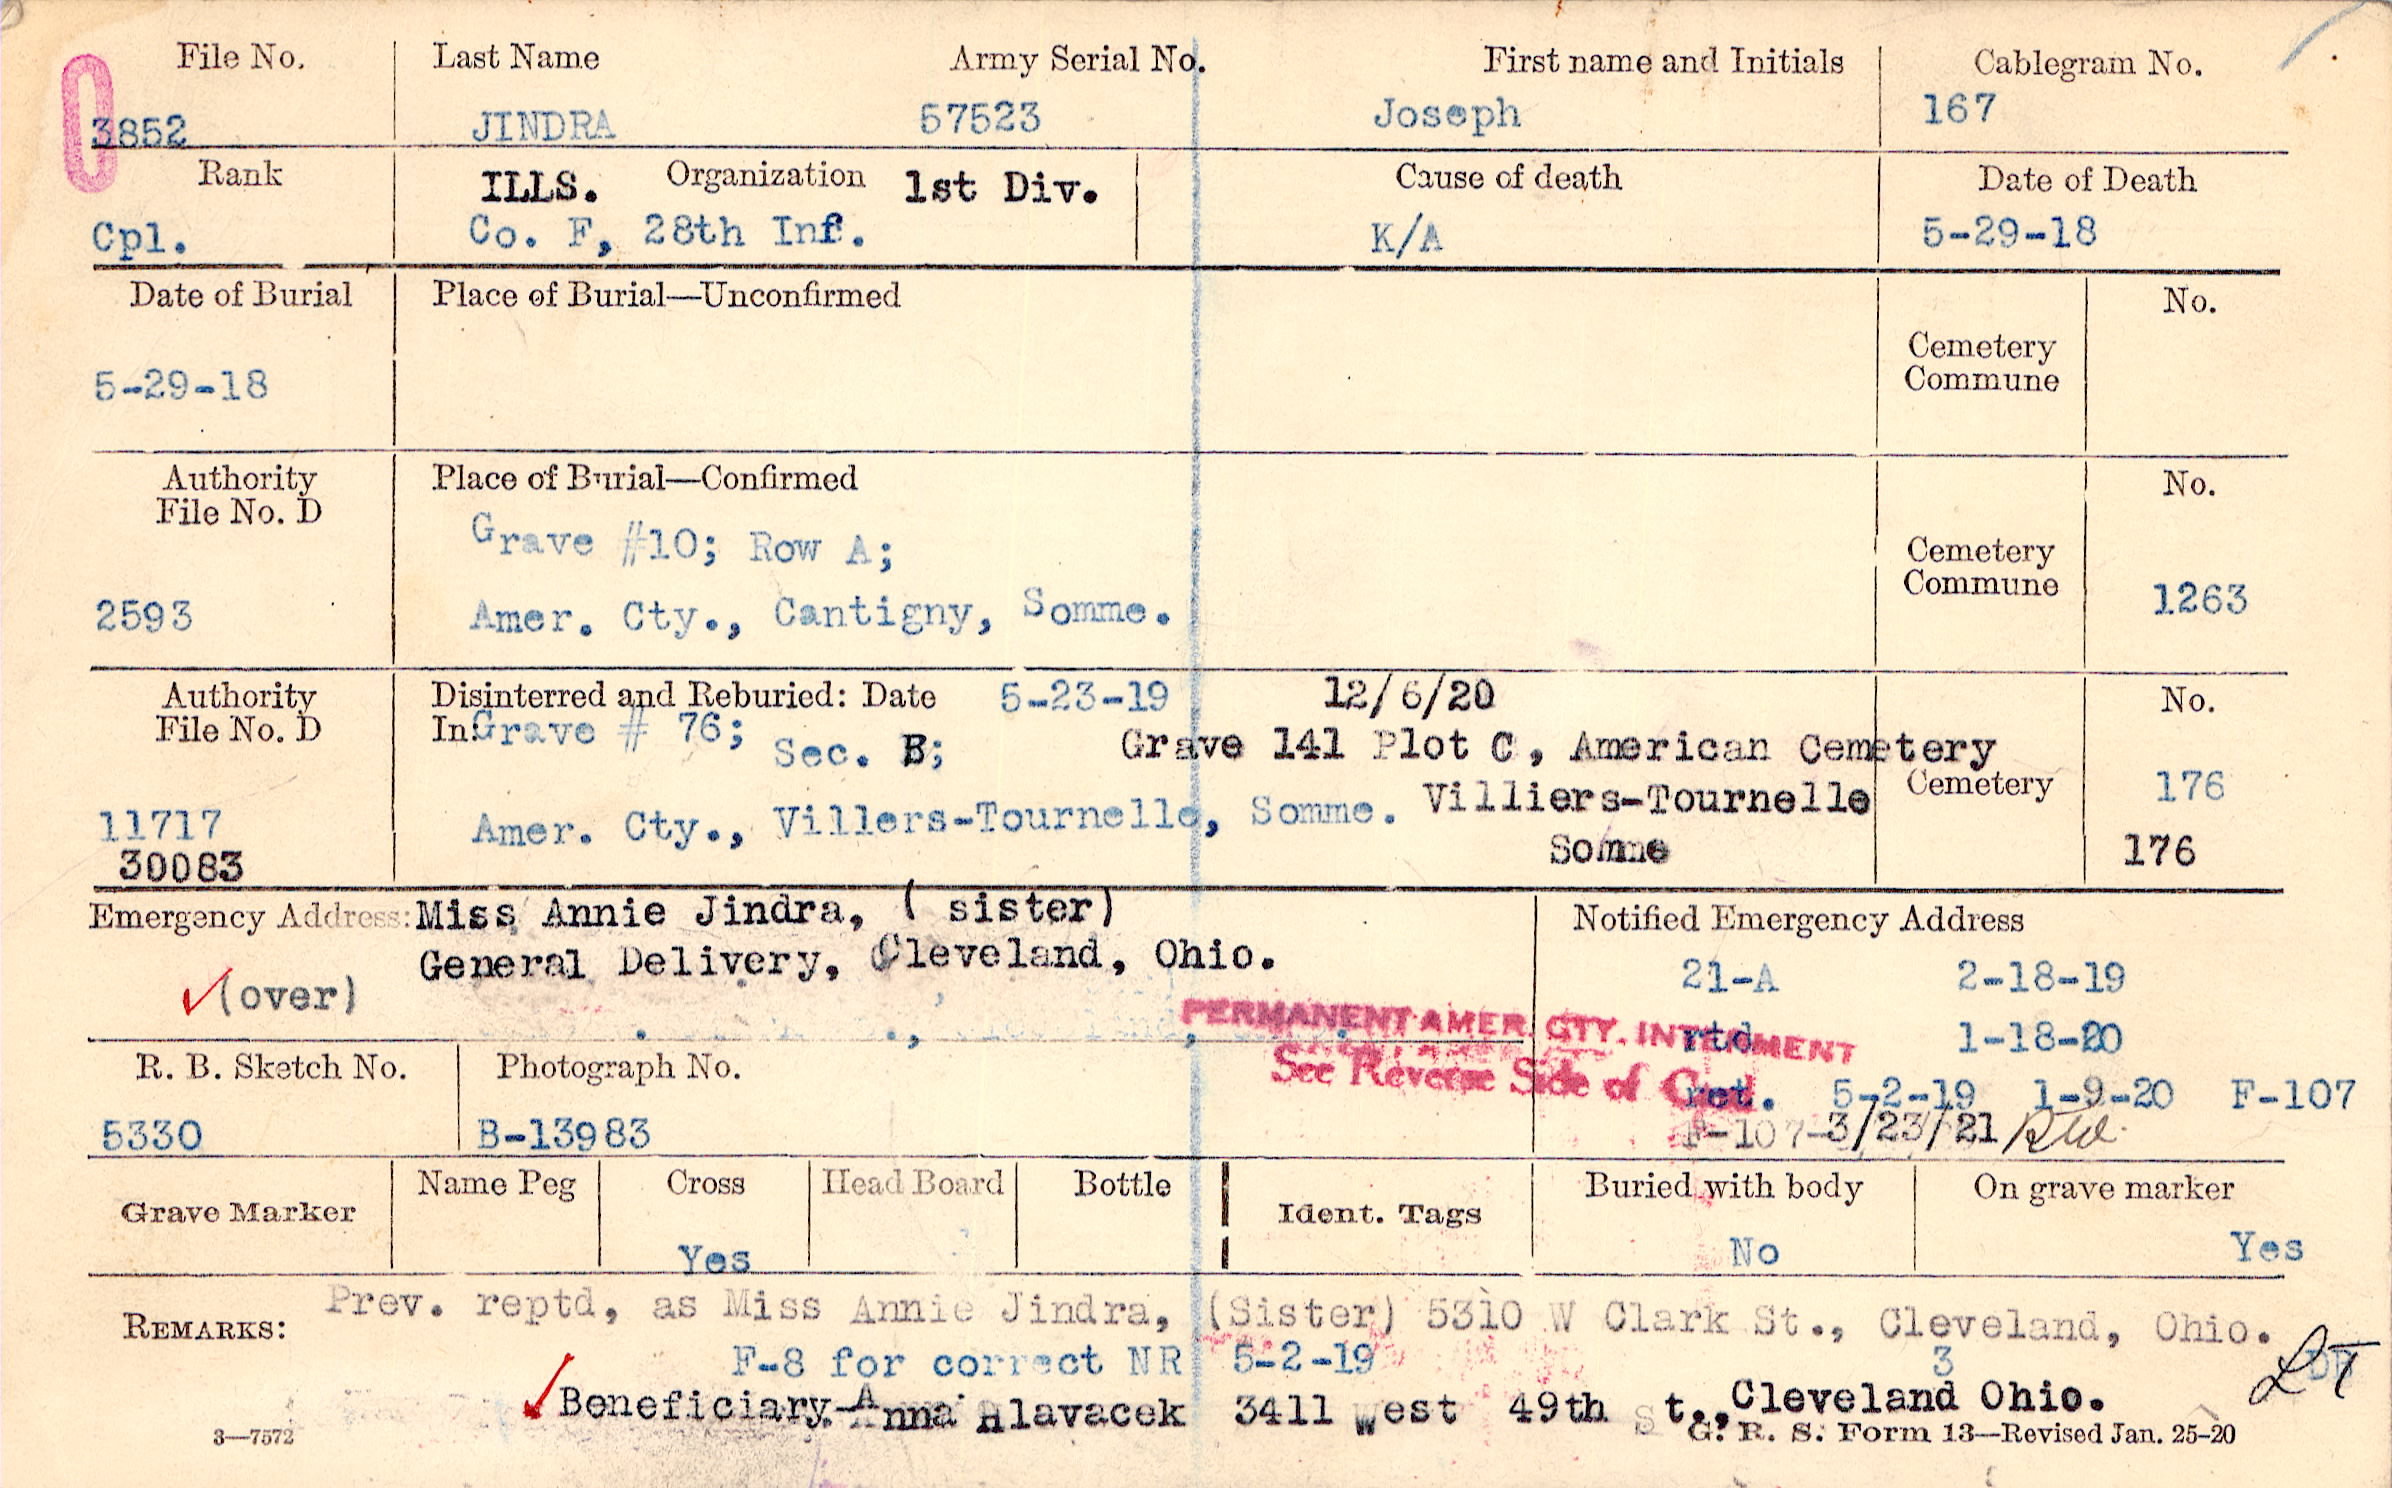 File No. Last Name Army Serial No. First name and Initials Cablegram No.
3852 JINDRA 57523 Joseph 167
Rank ILLS. Organization 1st Div. Cause of death Date of Death
Cpl. Co. F, 28th Inf. K/A 5-29-18
Date of Burial Place of Burial—Unconfirmed No.
Cemetery
Commune
5-29-18
Authority Place of Burial—Confirmed No.
File No. D
Grave #10; Row A;
Cemetery
Commune
2593 Amer. Cty., Cantigny, Somme. 1263
Authority Disinterred and Reburied: Date 5-23-19 12/6/20 No.
File No. D In: Grave # 76; Sec. B; Grave 141 Plot C, American Cemetery
Cemetery 176
11717 Amer. Cty., Villers-Tournelle, Somme. Villiers-Tournelle
30083 Somme 176
Emergency Address: Miss Annie Jindra, ( sister) Notified Emergency Address
General Delivery, Cleveland, Ohio. 21-A 2-18-19
(over)
PERMANENT AMER. CTY. INTERMENT
rtd 1-18-20
See Reverse Side of Card
R. B. Sketch No. Photograph No. ret. 5-2-19 1-9-20 F-107
5330 B-13983 F-107-3/23/21
Grave Marker Name Peg Cross Head Board Bottle Ident. Tags Buried with body On grave marker
Yes No Yes
REMARKS: Prev. reptd, as Miss Annie Jindra, (Sister) 5310 W Clark St., Cleveland, Ohio.
F-8 for correct NR 5-2-19 3
Beneficiary-Anna Hlavacek 3411 West 49th St., Cleveland Ohio.
3—7572 G. R. S. Form 13—Revised Jan. 25-20